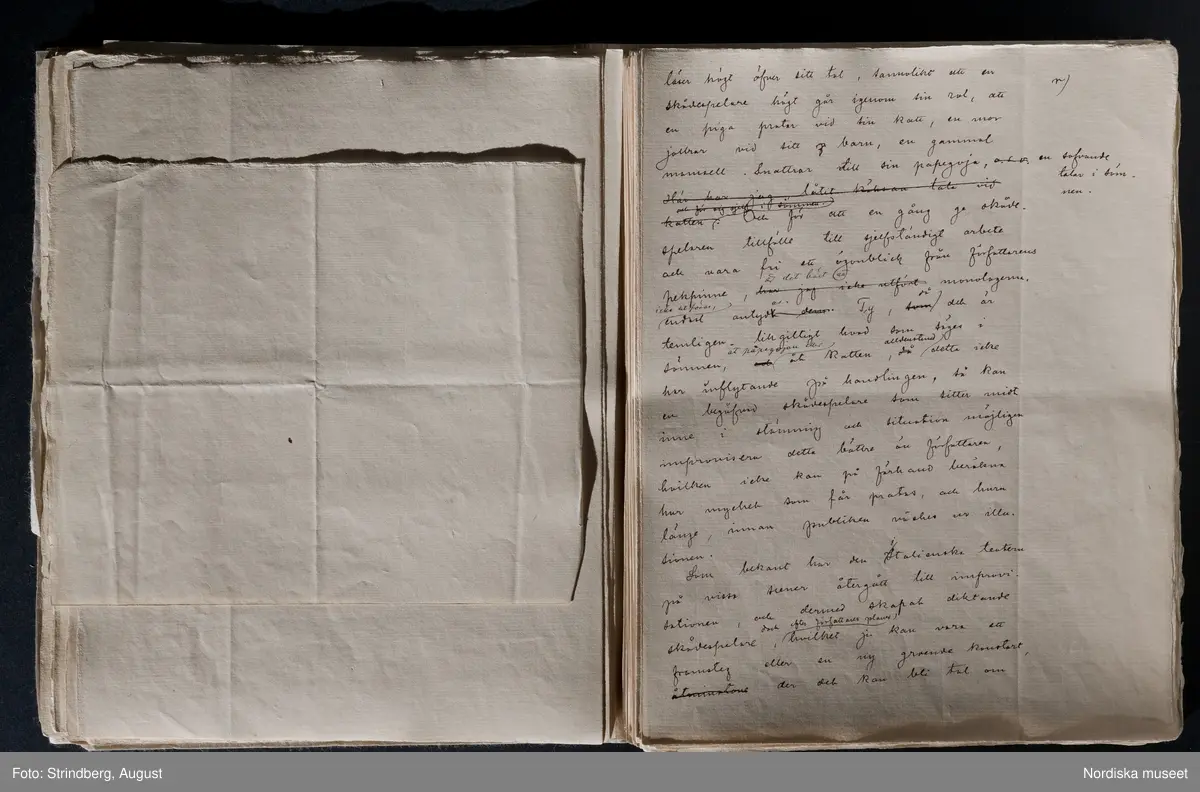 r)
läser högt öfver sitt tal, sannolikt att en
skådespelare högt går igenom sin rol, att
en piga pratar vid sin katt, en mor
jollrar vid sitt barn, en gammal
mamsell snattrar till sin papegoja, en sofvande
talar i söm-
nen.
Här har jag låtit köksan tala vid
katten. Och för att en gång ge skåde-
spelaren tillfälle till sjelfständigt arbete
och vara fri ett ögonblick från författarens
pekpinne, är det bäst att har jag icke utfört monologerna
icke utföras,
endast antydas. Ty, då det är
temligen likgiltigt hvad som säges i
sömnen, åt papegojan eller åt katten, alldenstund detta icke
har inflytande på handlingen, så kan
en begåfvad skådespelare som sitter midt
inne i stämning och situation möjligen
improvisera detta bättre än författaren,
hvilken icke kan på förhand beräkna
hur mycket som får pratas, och huru
länge, innan publiken väckes ur illu-
sionen.
Som bekant har den Italienska teatern
på vissa scener återgått till improvi-
sationen, och dermed skapat diktande
skådespelare, dock efter författarens planer, hvilket ju kan vara ett
framsteg eller en ny groende konstart,
der det kan bli tal om
Foto: Strindberg, August
Nordiska museet